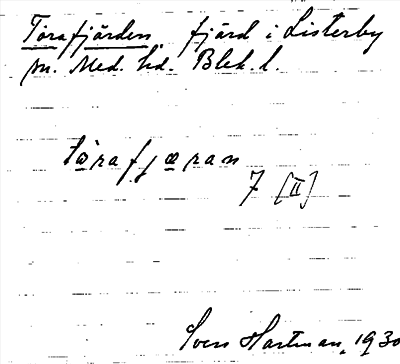 Torafjärden fjärd i Listerby
sn. Med. hd. Blek. l.
tòrafjæran
7 [II]
Sven Hartman, 1930